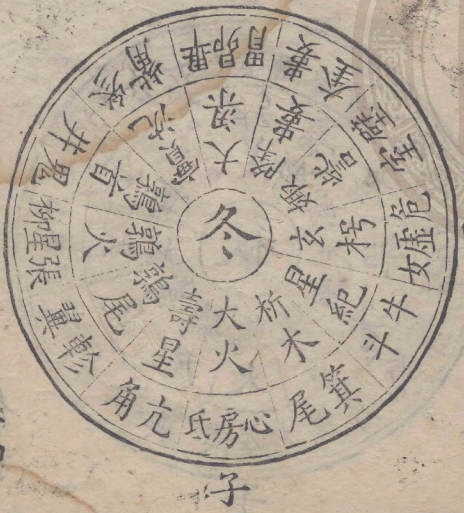 冬
大火
析木
星紀
玄枵
娵訾
降婁
大梁
實沈
鶉首
鶉火
鶉尾
壽星
氐房心
尾箕
斗牛
女虛危
室壁
奎婁
胃昴畢
觜參
井鬼
柳星張
翼軫
角亢
子